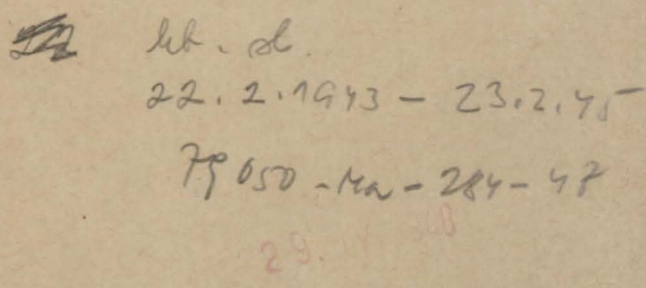 22.2.1943 – 23.2.45
79050 - Ma - 284 - 47
29. IV